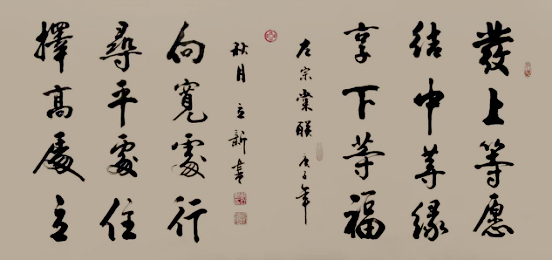 發上等愿
结中等缘
享下等福
左宗棠联 庚子年
秋月 立新书
向寬處行
尋平處住
擇高處立